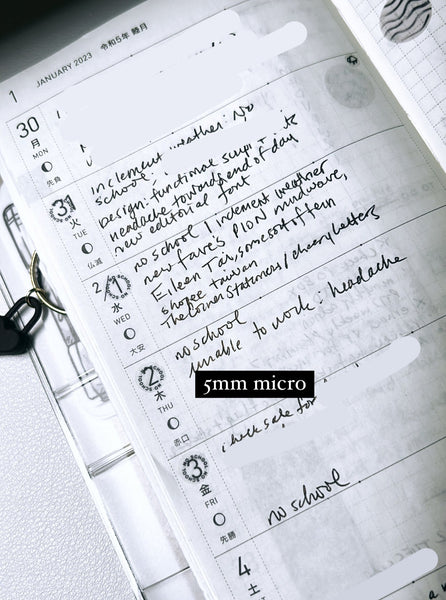 1 JANUARY 2023 令和5年 睦月
30
月
MON
先負
inclement weather: No
school,
31
火
TUE
仏滅
Design: functional script its
headache toward end of day
new editorial font
2
1
水
WED
大安
no school / inclement weather
new faves: PION mudwave,
Eileen Tai, some sort of fern
shopee taiwan
The Corner Stationers / cheery letters
2
木
THU
赤口
no school
unable to work: headache
5mm micro
3
金
FRI
先勝
check sale for
no school
4
土